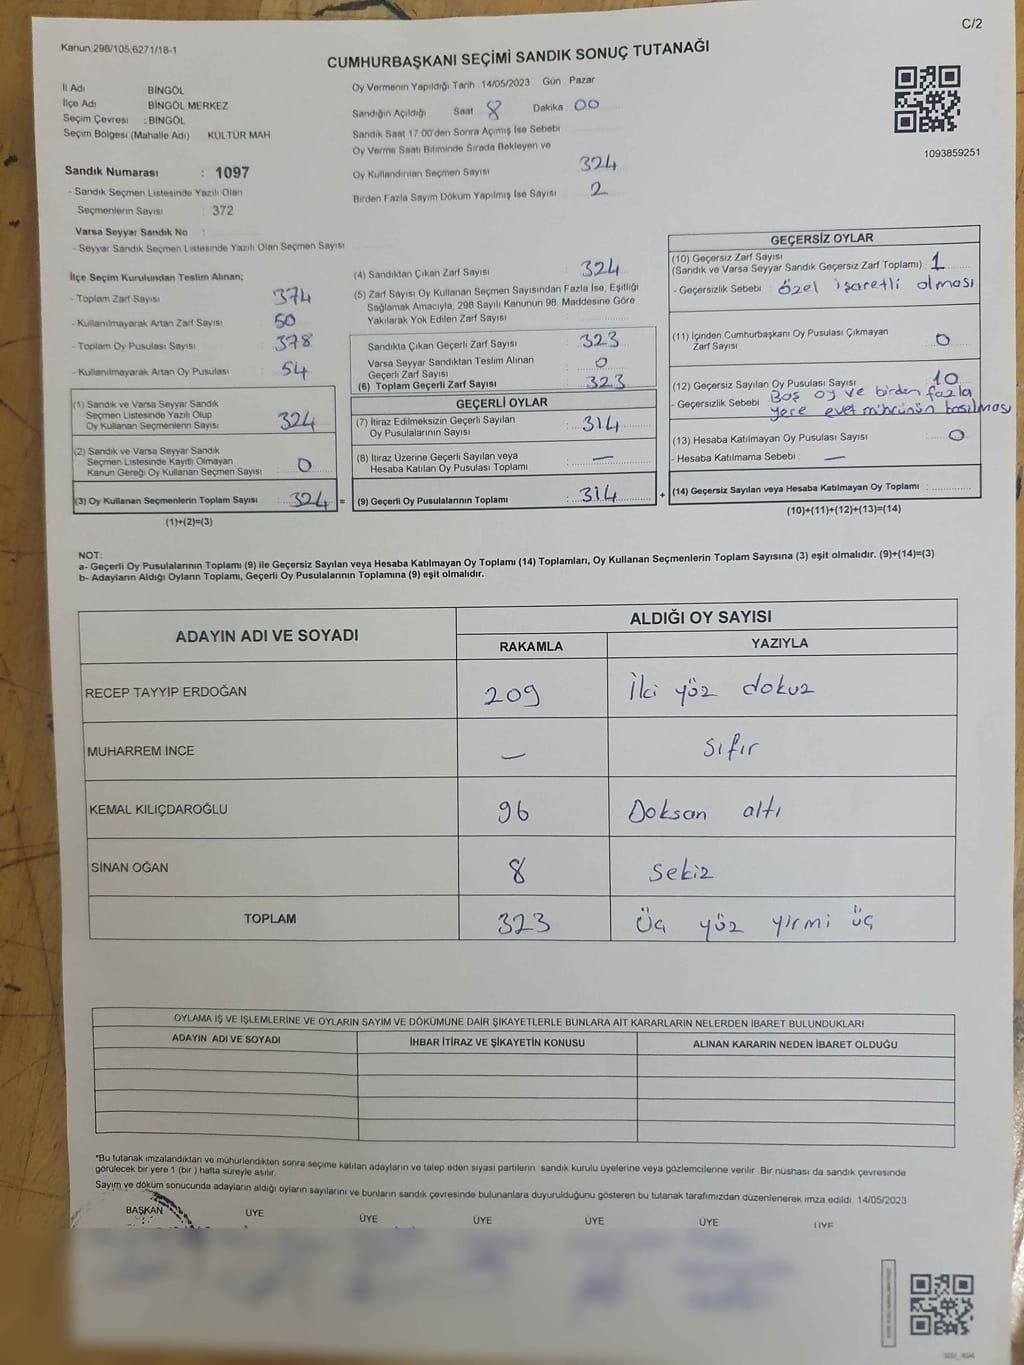 C/2
Kanun:298/105,6271/18-1
CUMHURBAŞKANI SEÇİMİ SANDIK SONUÇ TUTANAĞI
İl Adı BİNGÖL
İlçe Adı BİNGÖL MERKEZ
Seçim Çevresi : BİNGÖL
Seçim Bölgesi (Mahalle Adı) KÜLTÜR MAH
Oy Vermenin Yapıldığı Tarih 14/05/2023 Gün Pazar
Sandığın Açıldığı Saat 8 Dakika 00
Sandık Saat 17.00'den Sonra Açımış İse Sebebi
Oy Verme Saati Bitiminde Sırada Bekleyen ve
Oy Kullandırılan Seçmen Sayısı 324
Birden Fazla Sayım Döküm Yapılmış İse Sayısı 2
1093859251
Sandık Numarası : 1097
- Sandık Seçmen Listesinde Yazılı Olan
Seçmenlerin Sayısı : 372
Varsa Seyyar Sandık No :
- Seyyar Sandık Seçmen Listesinde Yazılı Olan Seçmen Sayısı
İlçe Seçim Kurulundan Teslim Alınan;
- Toplam Zarf Sayısı 374
- Kullanılmayarak Artan Zarf Sayısı 50
- Toplam Oy Pusulası Sayısı 378
- Kullanılmayarak Artan Oy Pusulası 54
(1) Sandık ve Varsa Seyyar Sandık
Seçmen Listesinde Yazılı Olup
Oy Kullanan Seçmenlerin Sayısı 324
(2) Sandık ve Varsa Seyyar Sandık
Seçmen Listesinde Kayıtlı Olmayan
Kanun Gereği Oy Kullanan Seçmen Sayısı 0
(3) Oy Kullanan Seçmenlerin Toplam Sayısı : 324 =
(1)+(2)=(3)
(4) Sandıktan Çıkan Zarf Sayısı : 324
(5) Zarf Sayısı Oy Kullanan Seçmen Sayısından Fazla İse, Eşitliği
Sağlamak Amacıyla, 298 Sayılı Kanunun 98. Maddesine Göre
Yakılarak Yok Edilen Zarf Sayısı :
Sandıkta Çıkan Geçerli Zarf Sayısı : 323
Varsa Seyyar Sandıktan Teslim Alınan
Geçerli Zarf Sayısı : 0
(6) Toplam Geçerli Zarf Sayısı : 323
GEÇERLİ OYLAR
(7) İtiraz Edilmeksizin Geçerli Sayılan
Oy Pusulalarının Sayısı : 314
(8) İtiraz Üzerine Geçerli Sayılan veya
Hesaba Katılan Oy Pusulası Toplamı : —
(9) Geçerli Oy Pusulalarının Toplamı : 314 +
GEÇERSİZ OYLAR
(10) Geçersiz Zarf Sayısı
(Sandık ve Varsa Seyyar Sandık Geçersiz Zarf Toplamı) : 1
- Geçersizlik Sebebi : özel işaretli olması
(11) İçinden Cumhurbaşkanı Oy Pusulası Çıkmayan
Zarf Sayısı : 0
(12) Geçersiz Sayılan Oy Pusulası Sayısı : 10
- Geçersizlik Sebebi : Boş oy ve birden fazla
yere evet mührünün basılması
(13) Hesaba Katılmayan Oy Pusulası Sayısı : 0
- Hesaba Katılmama Sebebi : —
(14) Geçersiz Sayılan veya Hesaba Katılmayan Oy Toplamı :
(10)+(11)+(12)+(13)=(14)
NOT:
a- Geçerli Oy Pusulalarının Toplamı (9) ile Geçersiz Sayılan veya Hesaba Katılmayan Oy Toplamı (14) Toplamları, Oy Kullanan Seçmenlerin Toplam Sayısına (3) eşit olmalıdır. (9)+(14)=(3)
b- Adayların Aldığı Oyların Toplamı, Geçerli Oy Pusulalarının Toplamına (9) eşit olmalıdır.
ADAYIN ADI VE SOYADI
ALDIĞI OY SAYISI
RAKAMLA YAZIYLA
RECEP TAYYİP ERDOĞAN 209 İki yüz dokuz
MUHARREM İNCE — sıfır
KEMAL KILIÇDAROĞLU 96 Doksan altı
SİNAN OĞAN 8 sekiz
TOPLAM 323 Üç yüz yirmi üç
OYLAMA İŞ VE İŞLEMLERİNE VE OYLARIN SAYIM VE DÖKÜMÜNE DAİR ŞİKAYETLERLE BUNLARA AİT KARARLARIN NELERDEN İBARET BULUNDUKLARI
ADAYIN ADI VE SOYADI İHBAR İTİRAZ VE ŞİKAYETİN KONUSU ALINAN KARARIN NEDEN İBARET OLDUĞU
*Bu tutanak imzalandıktan ve mühürlendikten sonra seçime katılan adayların ve talep eden siyasi partilerin sandık kurulu üyelerine veya gözlemcilerine verilir. Bir nüshası da sandık çevresinde
görülecek bir yere 1 (bir) hafta süreyle asılır.
Sayım ve döküm sonucunda adayların aldığı oyların sayılarını ve bunların sandık çevresinde bulunanlara duyurulduğunu gösteren bu tutanak tarafımızdan düzenlenerek imza edildi. 14/05/2023
BAŞKAN ÜYE ÜYE ÜYE ÜYE ÜYE ÜYE